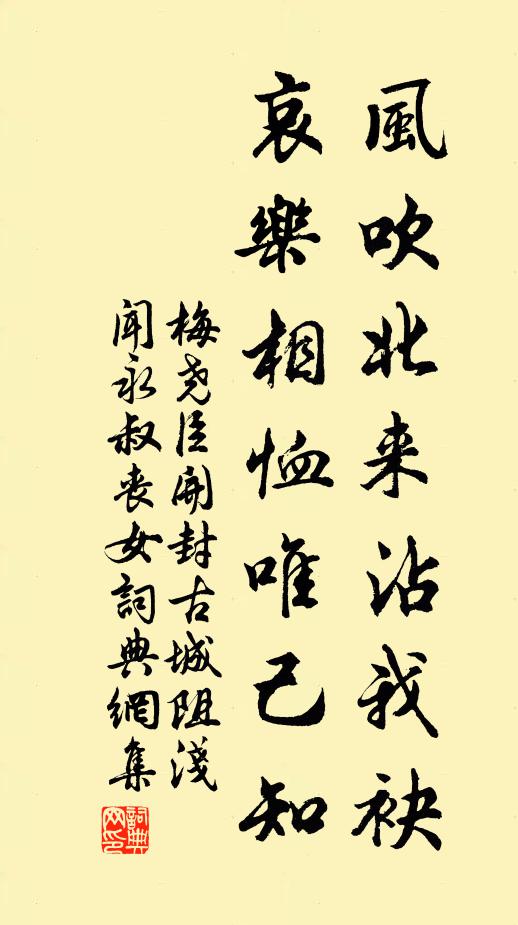 風吹北来沾我袂
哀樂相恤唯己知
梅尧臣開封古城阻淺
聞永叔喪女詞典網集
詞典網印